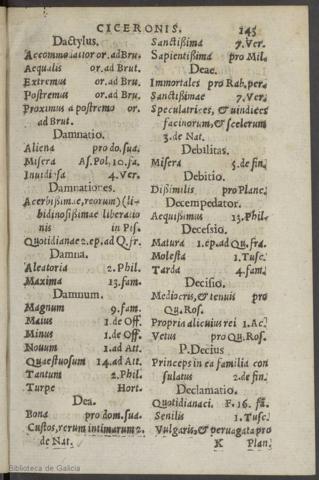 CICERONIS. 145
Dactylus.
Accommodatior or. ad Bru.
Aequalis or. ad Brut.
Extremus or. ad Bru.
Postremus or. ad Bru.
Proximus a postremo or.
ad Brut.
Damnatio.
Aliena pro do. sua.
Misera As. Pol. 10. fa.
Inuidiosa 4. Ver.
Damnationes.
Acerbißimae, reorum) (li-
bidinosißimae liberatio
nis in Pis.
Quotidianae 2. ep. ad Q. fr.
Damna.
Aleatoria 2. Phil.
Maxima 13. fam.
Damnum.
Magnum 9. fam.
Maius 1. de Off.
Minus 1. de Off.
Nouum 1. ad Att.
Quaestuosum 14. ad Att.
Tantum 2. Phil.
Turpe Hort.
Dea.
Bona pro dom. sua.
Custos, rerum intimarum 2.
de Nat.
Sanctißima 7. Ver.
Sapientißima pro Mil.
Deae.
Immortales pro Rab. per.
Sanctißimae 7. Ver.
Speculatrices, & uindices
facinorum, & scelerum
3. de Nat.
Debilitas.
Misera 5. de fin.
Debitio.
Dißimilis pro Planc.
Decempedator.
Aequißimus 13. Phil.
Decessio.
Matura 1. ep. ad Qu. fra.
Molesta 1. Tusc.
Tarda 4. fam.
Decisio.
Mediocris, & tenuis pro
Qu. Ros.
Propria alicuius rei 1. Ac.
Vetus pro Qu. Ros.
P. Decius
Princeps in ea familia con
sulatus 2. de fin.
Declamatio.
Quotidiana ci. F. 16. fã.
Senilis 1. Tusc.
Vulgaris, & peruagata pro
K Plan.
Biblioteca de Galicia